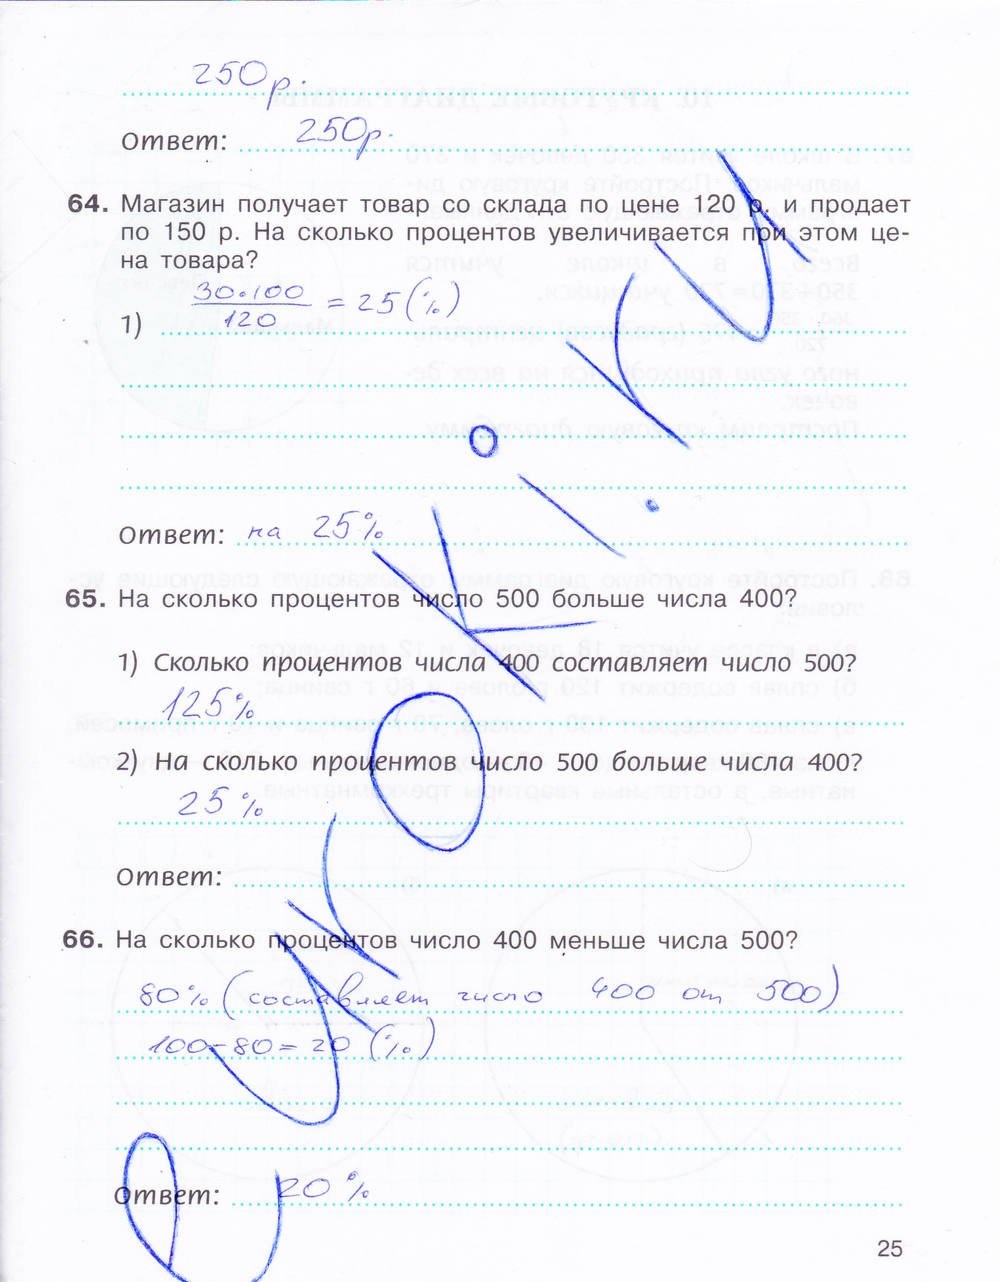 250р.
Ответ: 250р.
64. Магазин получает товар со склада по цене 120 р. и продает
по 150 р. На сколько процентов увеличивается при этом це-
на товара?
1) 30·100/120 = 25 (%)
Ответ: на 25%
65. На сколько процентов число 500 больше числа 400?
1) Сколько процентов числа 400 составляет число 500?
125%
2) На сколько процентов число 500 больше числа 400?
25%
Ответ:
66. На сколько процентов число 400 меньше числа 500?
80% (составляет число 400 от 500)
100-80=20 (%)
Ответ: 20%
25